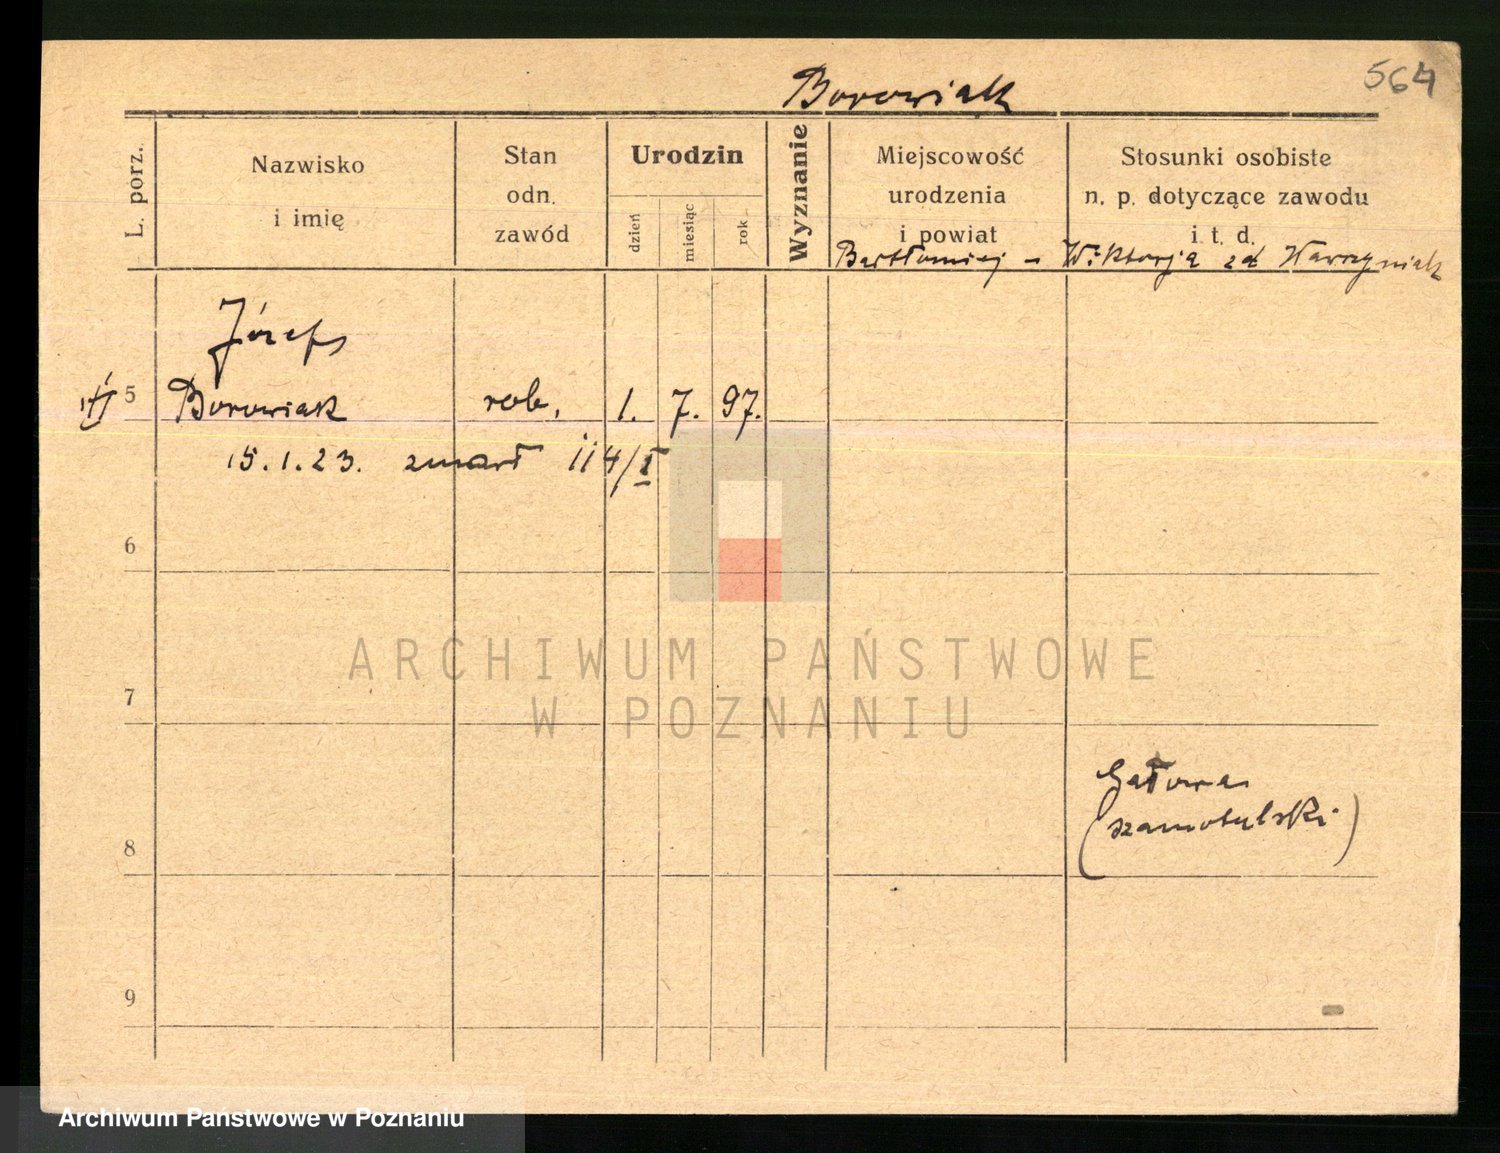 564
Borowiak
L. porz.
Nazwisko
i imię
Stan
odn.
zawód
Urodzin
dzień
miesiąc
rok
Wyznanie
Miejscowość
urodzenia
i powiat
Stosunki osobiste
n. p. dotyczące zawodu
i t. d.
Bartłomiej - Wiktorja zd Wawrzyniak
Józef
5 Borowiak rob. 1. 7. 97.
15.1.23. zmarł 114/I
6
7
Gałowa
(szamotulski)
8
9
ARCHIWUM PAŃSTWOWE
W POZNANIU
Archiwum Państwowe w Poznaniu